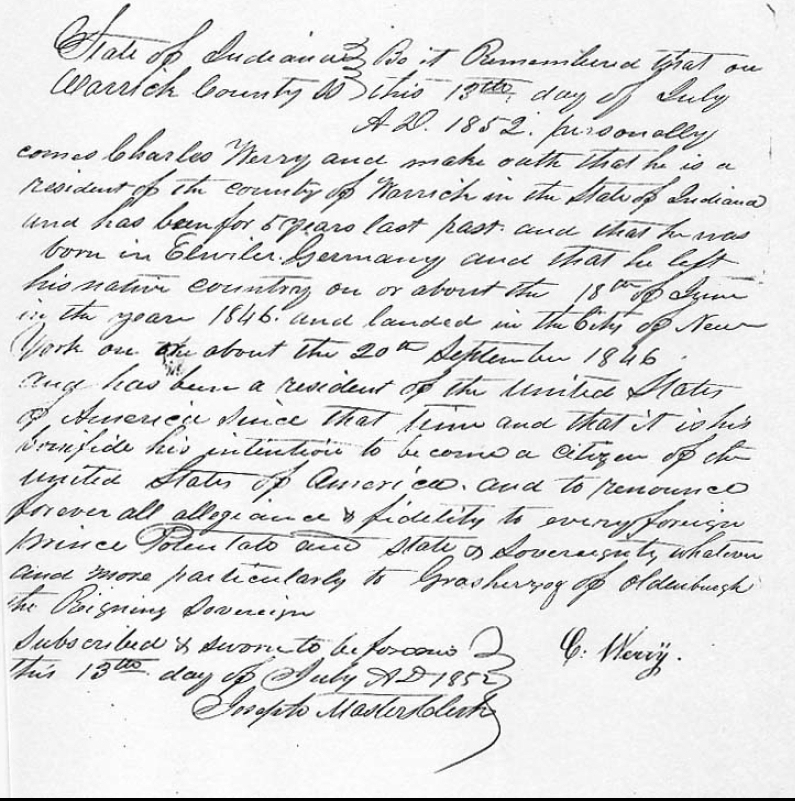 State of Indiana } Be it Remembered that on
Warrick County SS } this 13th day of July
A.D. 1852. personally
comes Charles Werry and make oath that he is a
resident of the county of Warrick in the State of Indiana
and has been for 5 years last past. and that he was
born in Elwiler Germany and that he left
his native country on or about the 18th of June
in the year 1846. and landed in the City of New
York on or about the 20th September 1846.
and has been a resident of the United States
of America since that time and that it is his
bonifide his intention to become a citizen of the
United States of America. and to renounce
forever all allegiance & fidelity to every foreign
prince Potentate and State & Sovereignty whatever
and more particularly to Grosherzog of Oldenburgh
the Reigning Sovereign
Subscribed & sworn to before me } C. Werrÿ.
this 13th day of July AD 1852 }
Joseph Masters Clerk